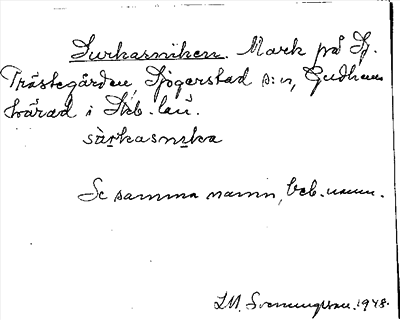 Surkasniken. Mark på Sj.
Prästegården, Sjogerstad s:n, Gudhems
härad i Skb. län.
sùrkasnika
Se samma namn, beb. namn.
L.M. Svenungsson. 1948.